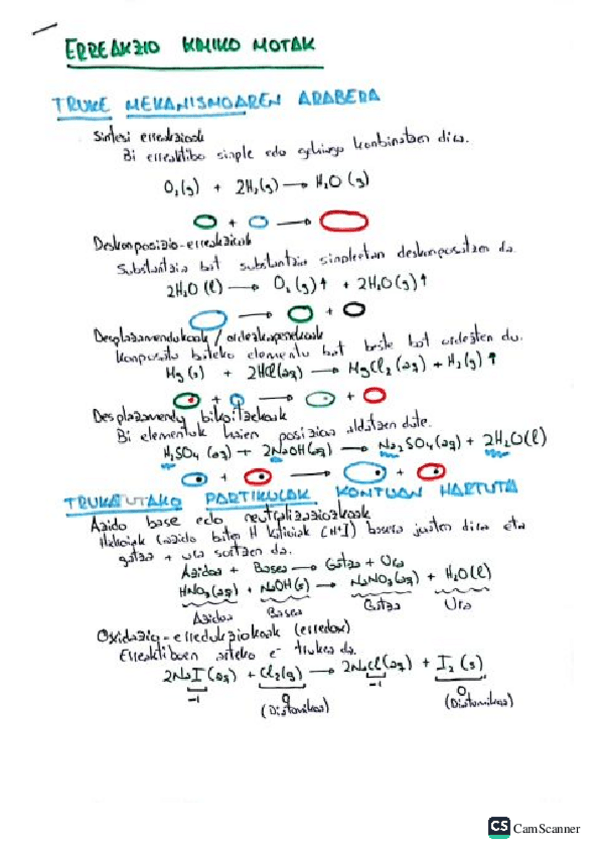 ERREAKZIO KIMIKO MOTAK
TRUKE MEKANISMOAREN ARABERA
Sintesi erreakzioak
Bi erreaktibo sinple edo gehiago konbinatzen dira.
O₂(g) + 2H₂(g) → H₂O (g)
+ →
Deskonposizio-erreakzioak
Substantzia bat substantzia sinpleetan deskonposatzen da.
2H₂O (l) → O₂ (g)↑ + 2H₂O (g)↑
→ +
Desplazamendukoak / ordezkapenekoak
Konposatu bateko elementu bat beste bat ordezten du.
Mg (s) + 2HCl(aq) → MgCl₂ (aq) + H₂(g) ↑
+ → +
Desplazamendu bikoitzekoak
Bi elementuk haien posizioa aldatzen dute.
H₂SO₄ (aq) + 2NaOH(aq) → Na₂SO₄(aq) + 2H₂O(l)
+ → +
TRUKATUTAKO PARTIKULAK KONTUAN HARTUTA
Azido base edo neutralizaziozkoak
(azido bateko H katioiak (H+1) basera joaten dira eta
gatza + ura sortzen da.
Azidoa + Basea → Gatza + Ura
HNO₃(aq) + NaOH(s) → NaNO₃(aq) + H₂O(l)
Azidoa Basea Gatza Ura
Oxidazio-erredukziokoak (erredox)
Erreaktiboen arteko e⁻ trukea da.
2NaI (aq) + Cl₂(g) → 2NaCl(aq) + I₂ (s)
-1 0 -1 0
(Diatomikoa) (Diatomikoa)
CS CamScanner